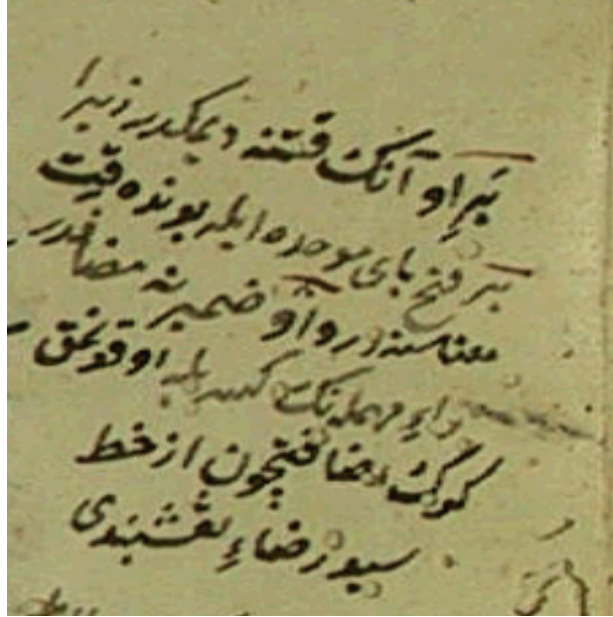 بَرِ او آنك قتنه ديمكدر زيرا
بر فتح باى موحده ايله بونده قت
معناسنه در و او ضميرينه مضافدر
راء مهمله نك كسريله اوقونمق
كرك اضافتچون از خط
سيد رضاء نقشبندى